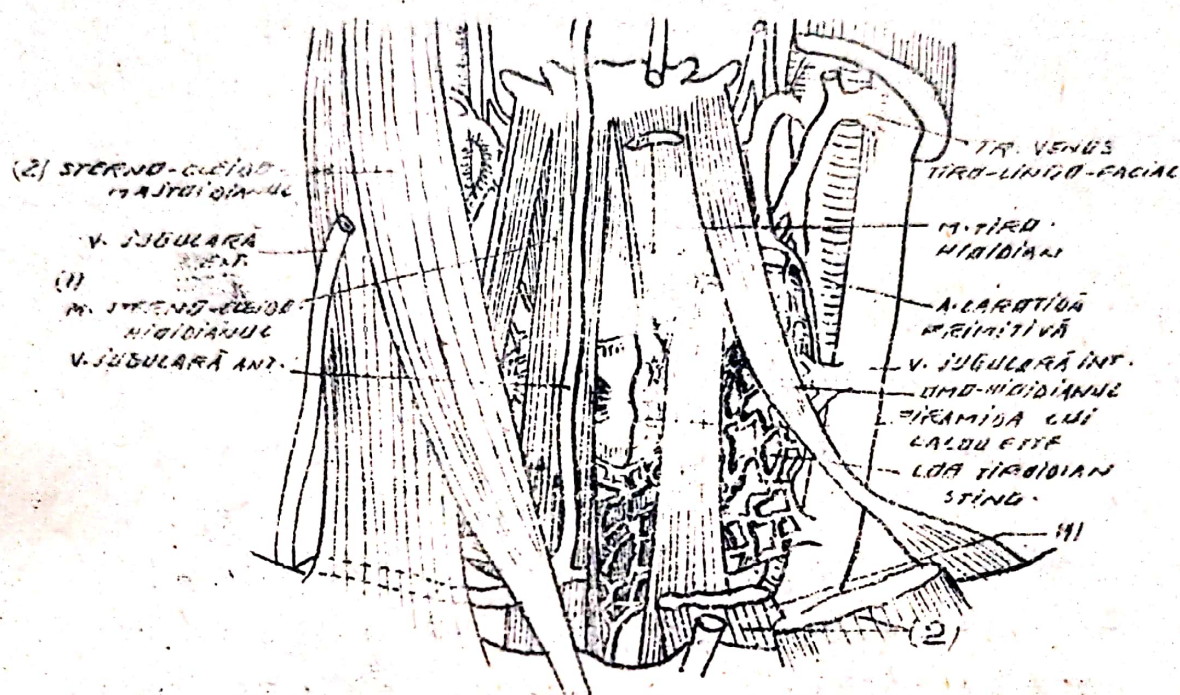 (2) STERNO-CLEIDO-
MASTOIDIANUL
V. JUGULARĂ
(1)
M. STERNO-CLEIDO-
HIOIDIANUL
V. JUGULARĂ ANT.
TR. VENOS
TIRO-LINGO-FACIAL
M. TIRO-
HIOIDIAN
A. CAROTIDĂ
PRIMITIVĂ
V. JUGULARĂ INT.
OMO-HIOIDIANUL
PIRAMIDA LUI
LALOUETTE
LOB TIROIDIAN
STING.
(1)
(2)